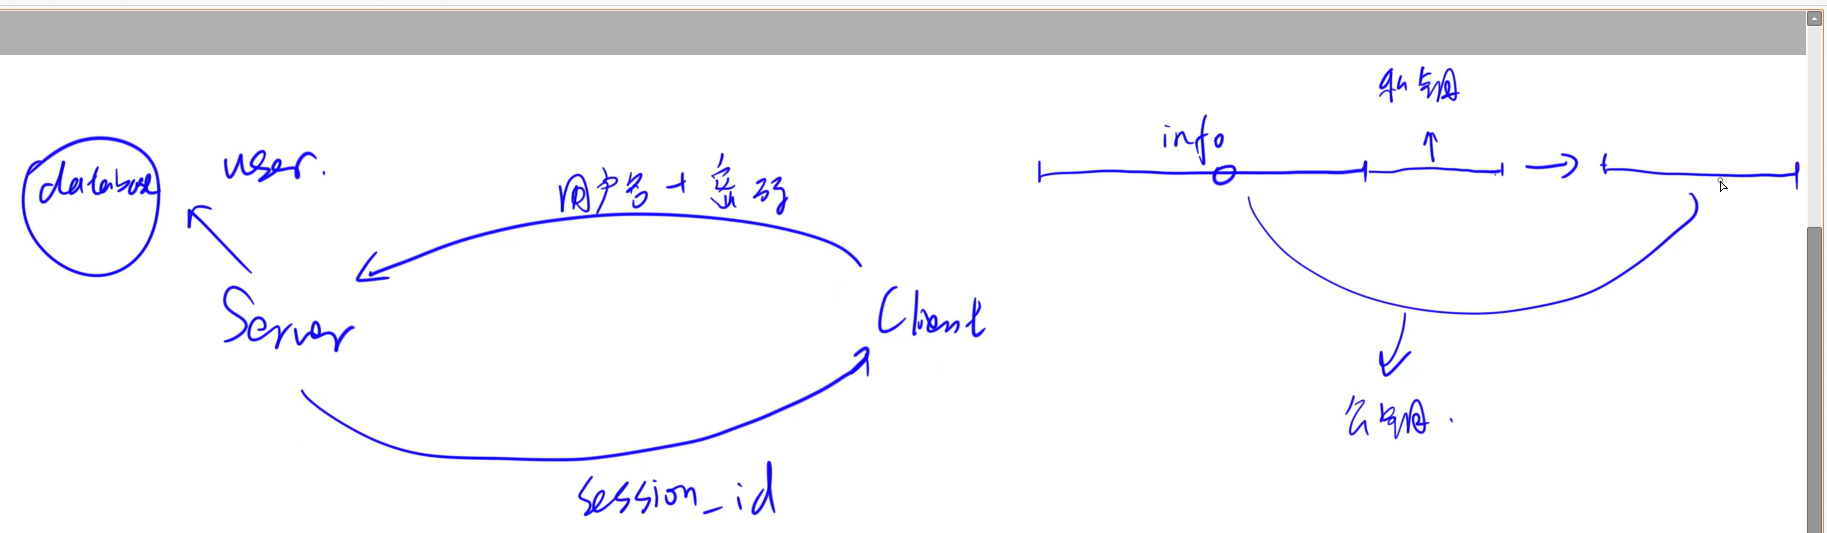 database
user.
用户名 + 密码
Server
Client
session_id
info
私钥
公钥.